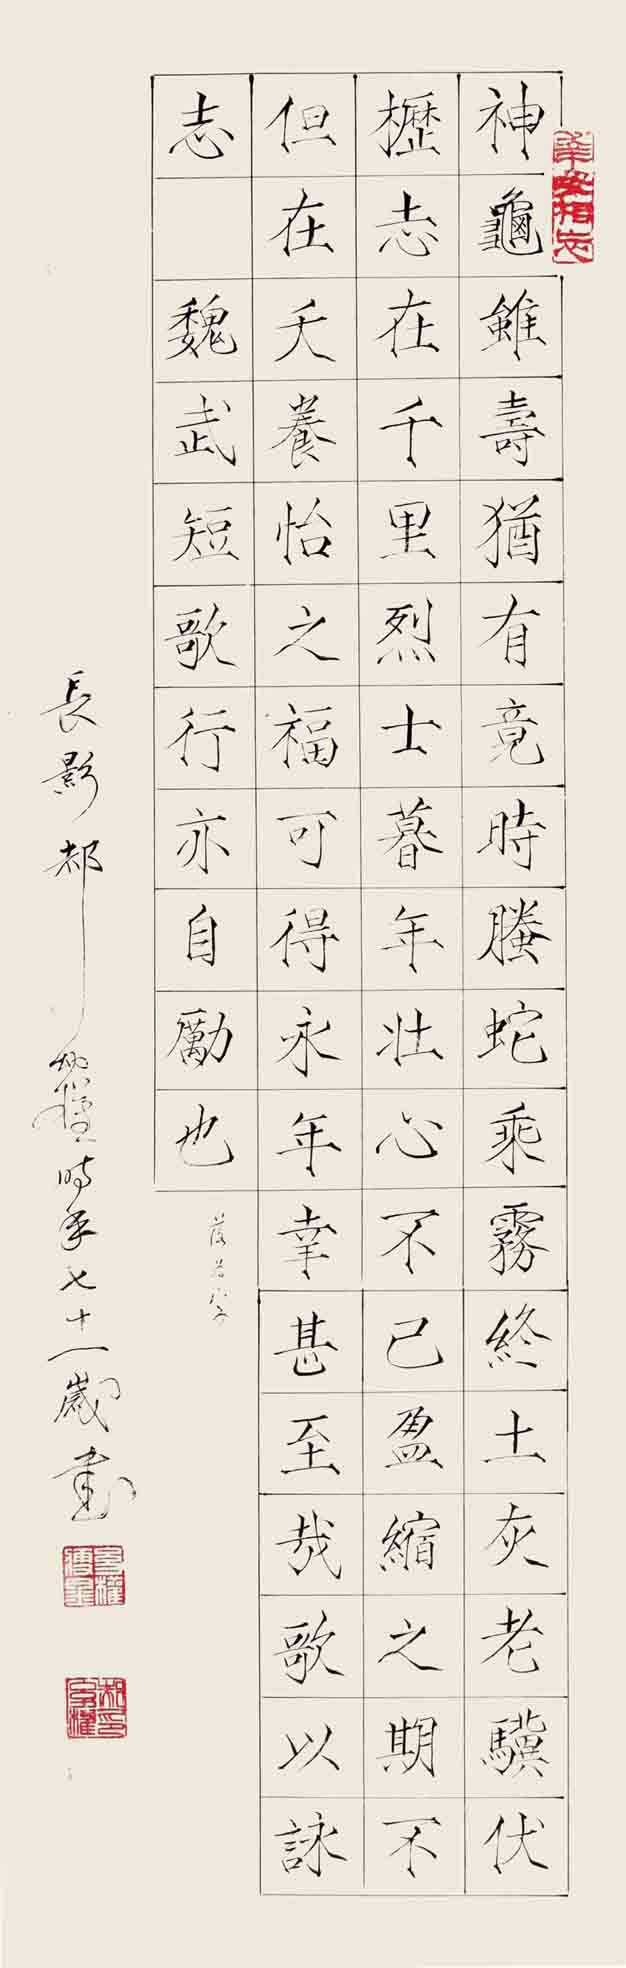 神龜雖壽猶有竟時螣蛇乘霧終土灰老驥伏
櫪志在千里烈士暮年壯心不已盈縮之期不
但在天養怡之福可得永年幸甚至哉歌以詠
志 魏武短歌行亦自勵也
長影郝幼權時年七十一歲書
幸毋相忘